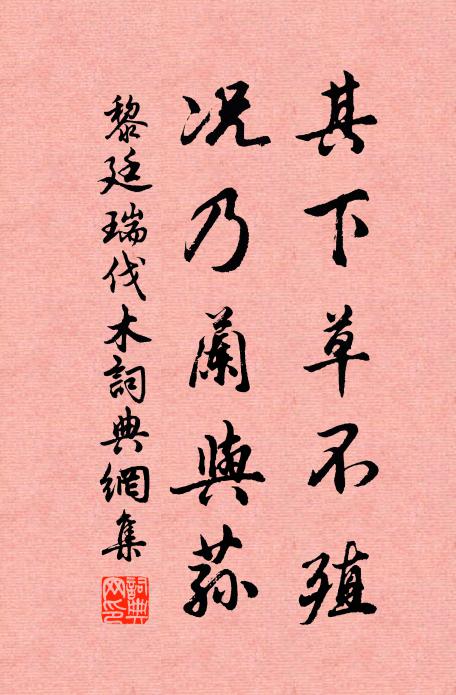 其下草不殖
况乃蘭與蓀
黎廷瑞伐木詞典網集
詞典網印